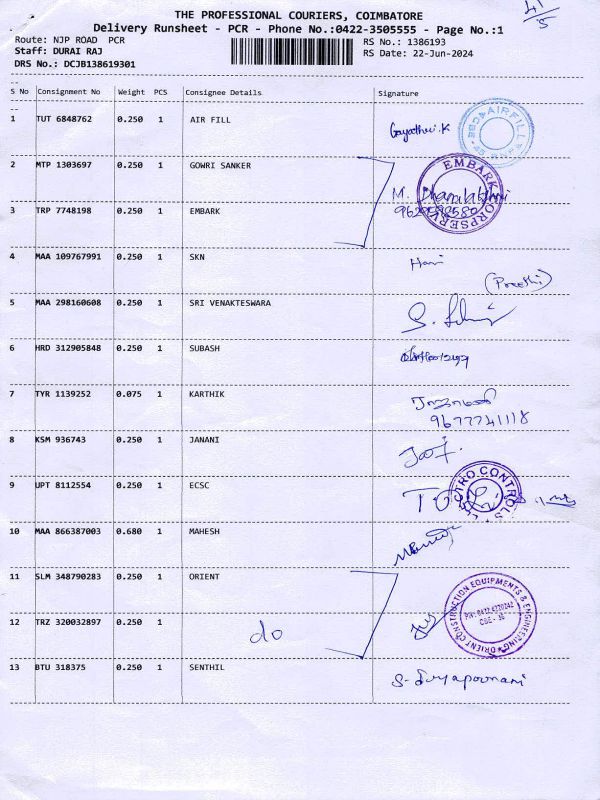 THE PROFESSIONAL COURIERS, COIMBATORE
Delivery Runsheet - PCR - Phone No.:0422-3505555 - Page No.:1
Route: NJP ROAD PCR
RS No.: 1386193
Staff: DURAI RAJ
RS Date: 22-Jun-2024
DRS No.: DCJB138619301
S No Consignment No Weight PCS Consignee Details Signature
1 TUT 6848762 0.250 1 AIR FILL Gayathri.K
2 MTP 1303697 0.250 1 GOWRI SANKER
EMBARK
3 TRP 7748198 0.250 1 EMBARK
4 MAA 109767991 0.250 1 SKN Hari
(Preethi)
5 MAA 298160608 0.250 1 SRI VENAKTESWARA
6 HRD 312905848 0.250 1 SUBASH
7 TYR 1139252 0.075 1 KARTHIK
9677741118
8 KSM 936743 0.250 1 JANANI
9 UPT 8112554 0.250 1 ECSC
10 MAA 866387003 0.680 1 MAHESH
11 SLM 348790283 0.250 1 ORIENT
ORIENT CONSTRUCTION EQUIPMENTS & ENGINEERING
12 TRZ 320032897 0.250 1 do
13 BTU 318375 0.250 1 SENTHIL